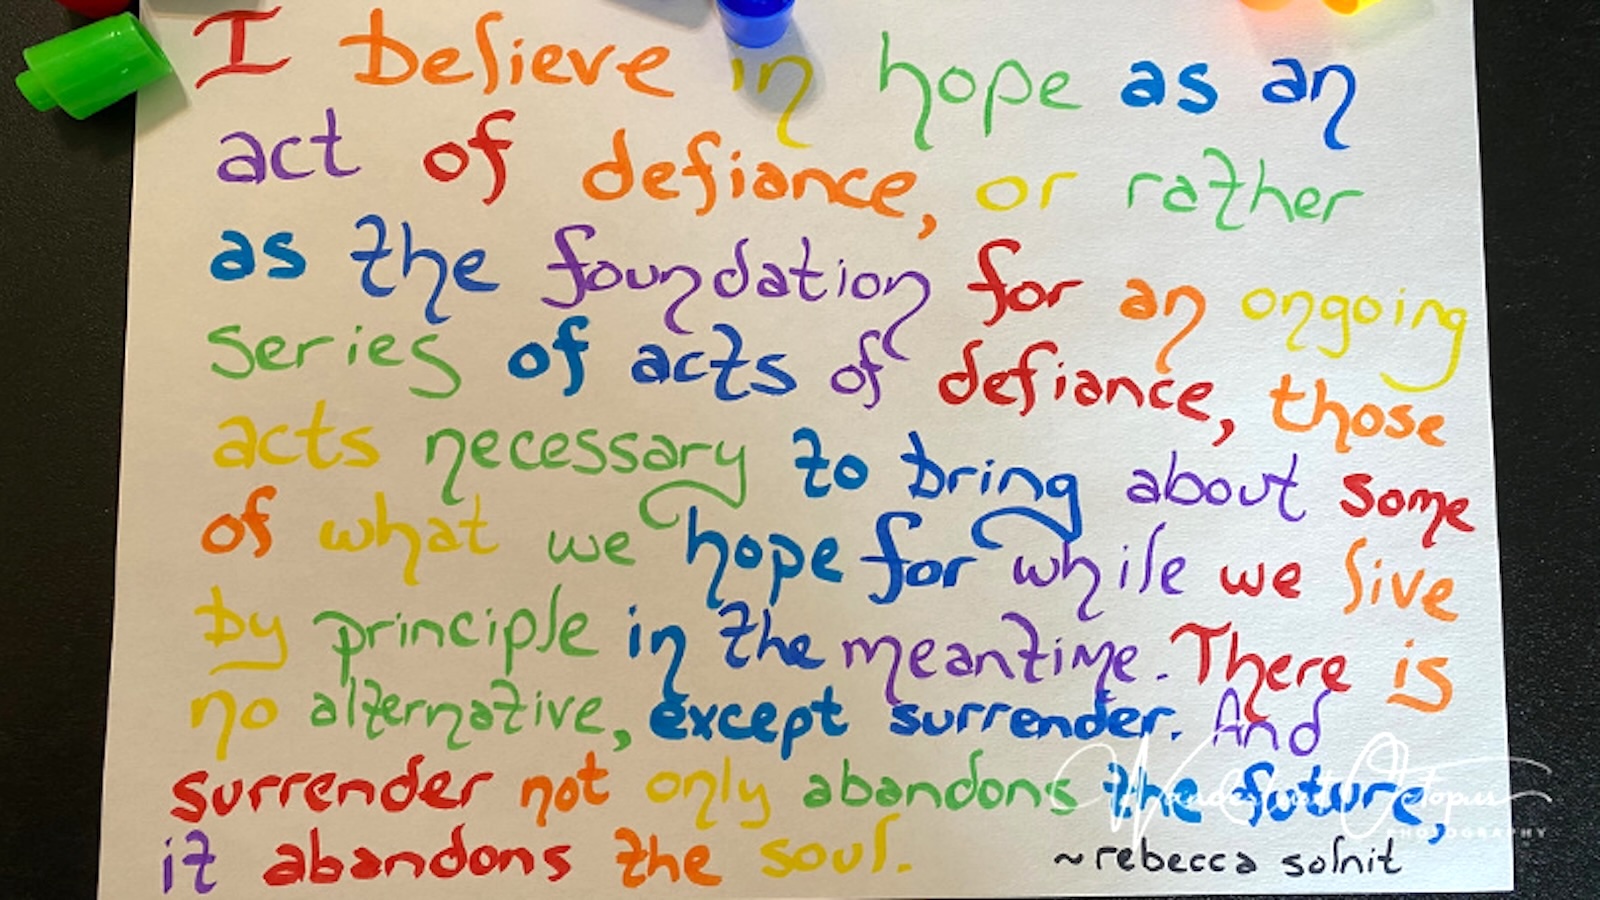 I believe in hope as an
act of defiance, or rather
as the foundation for an ongoing
series of acts of defiance, those
acts necessary to bring about some
of what we hope for while we live
by principle in the meantime. There is
no alternative, except surrender. And
surrender not only abandons the future,
it abandons the soul.
~rebecca solnit
Octopus
PHOTOGRAPHY